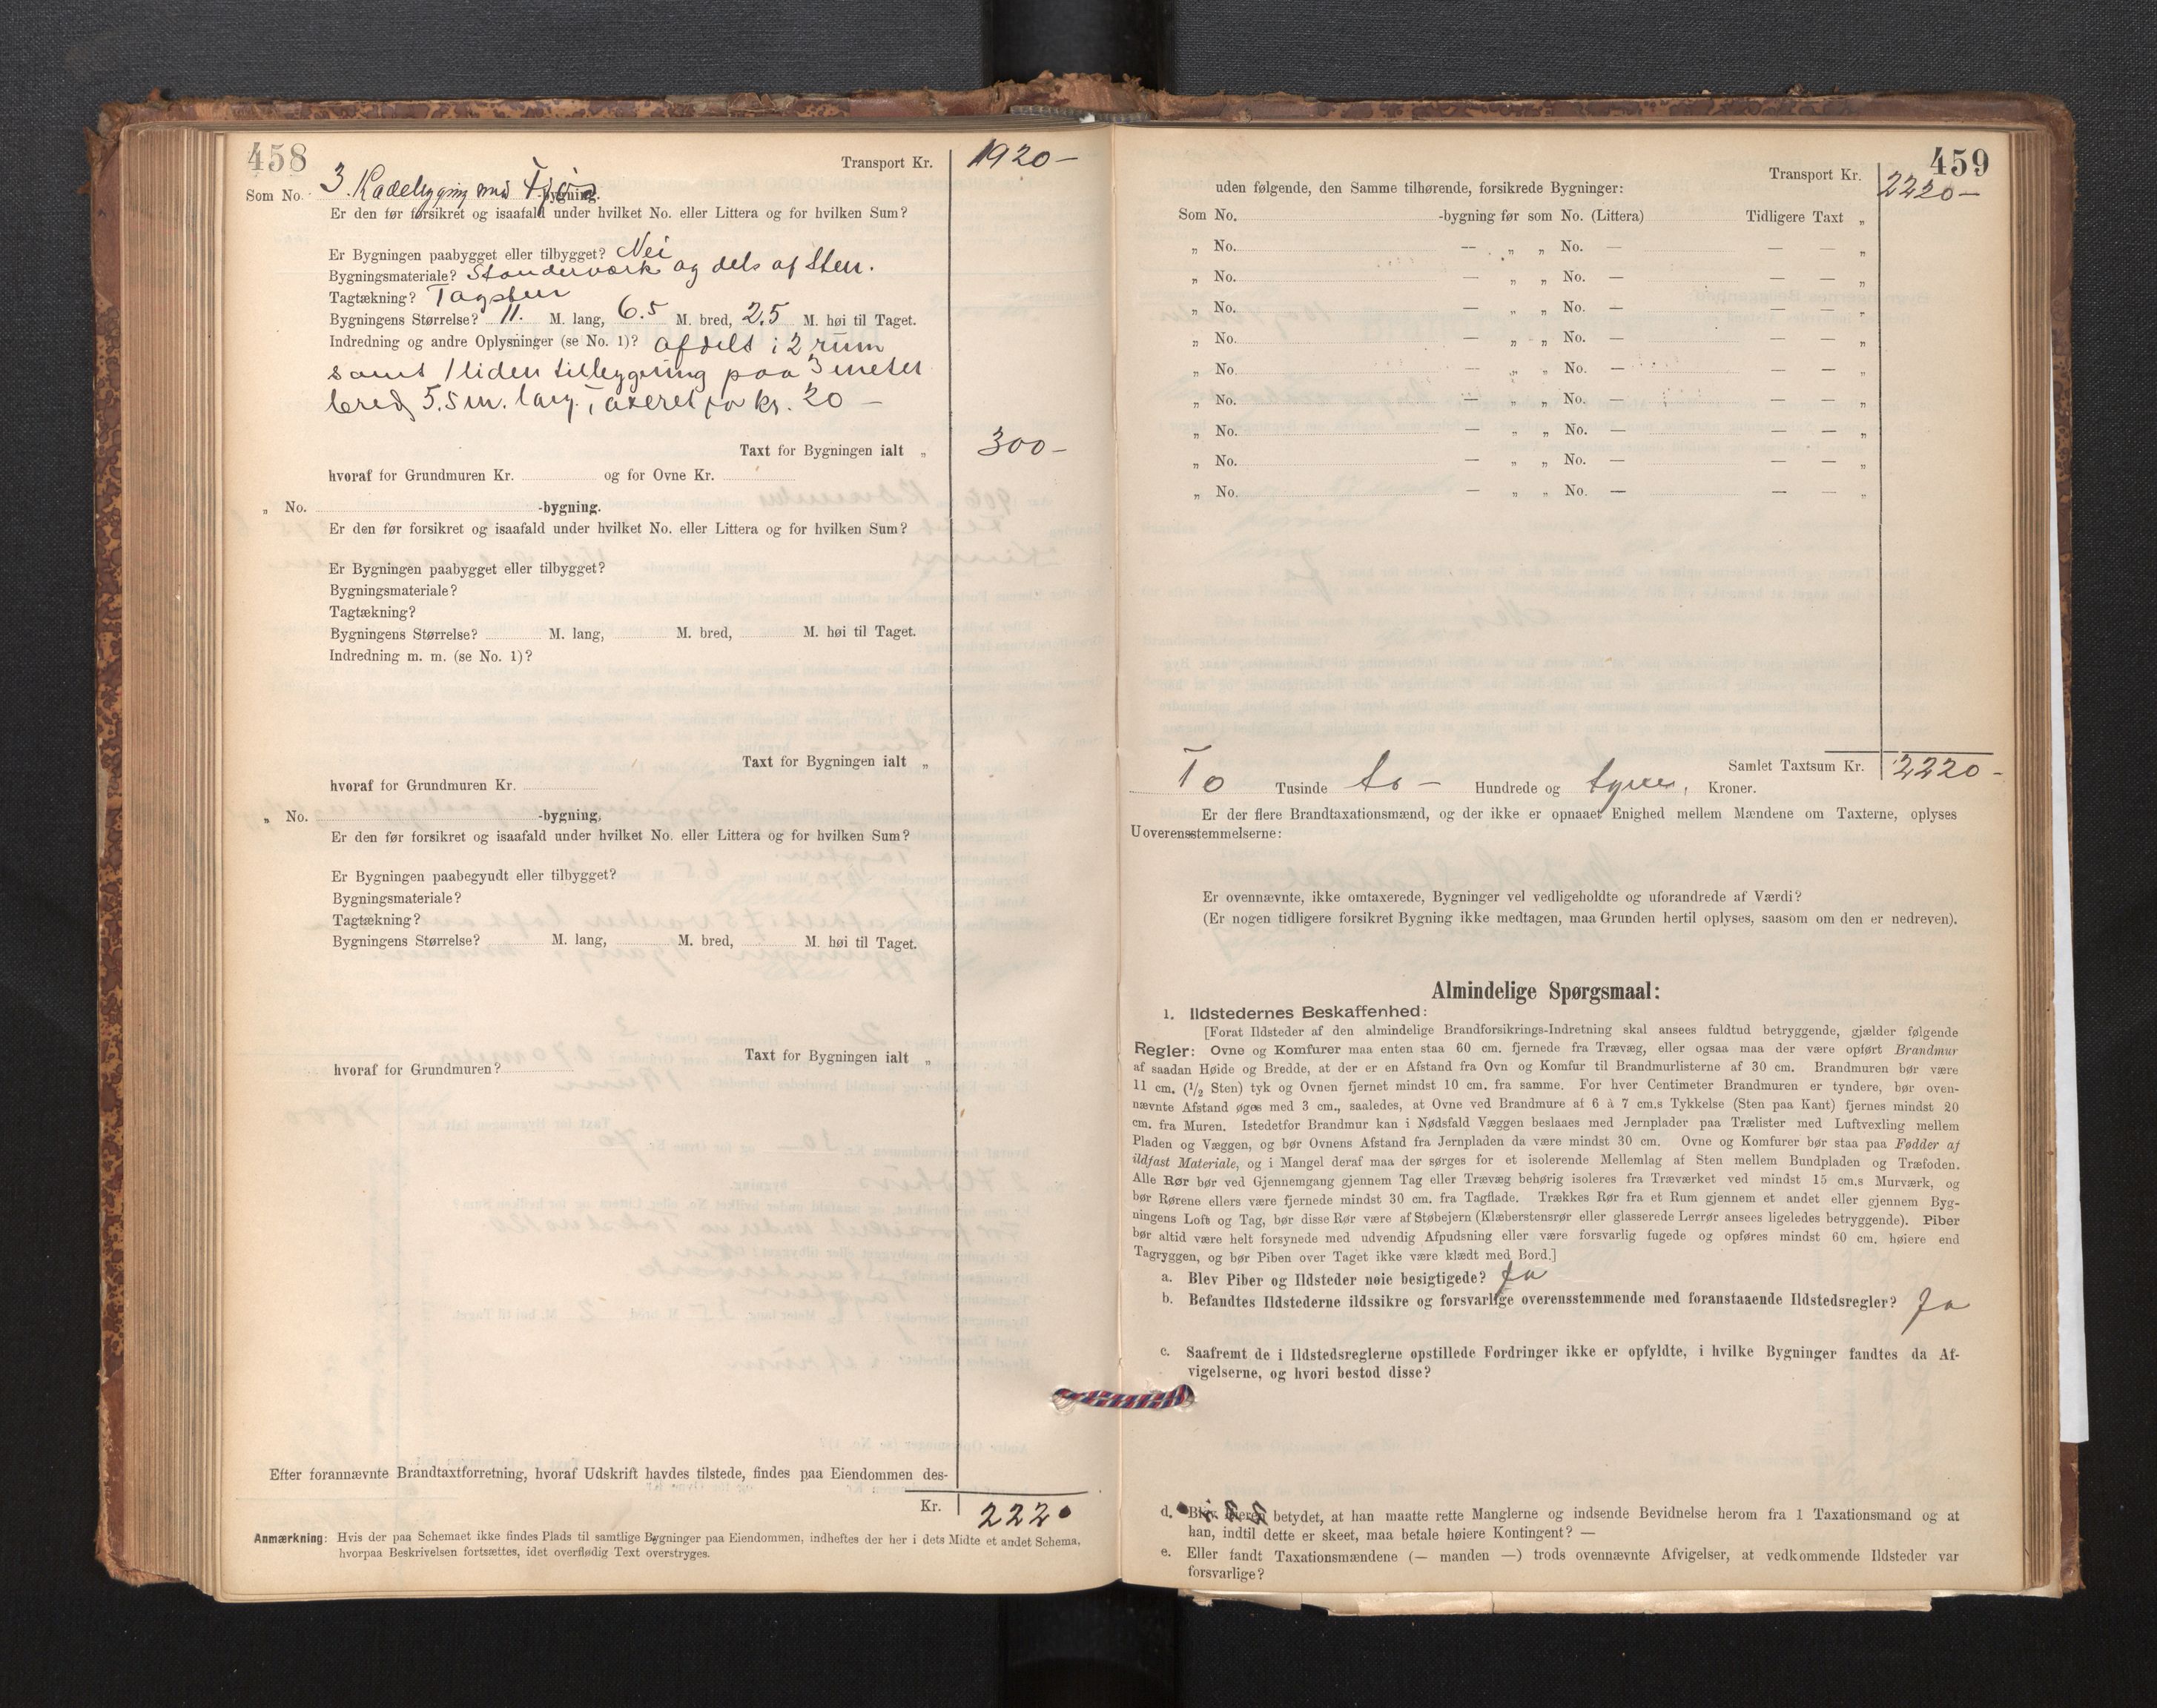 458
Transport Kr. 1920 –
Som No. 3. Ladebygning med -bygning.
Er den før forsikret og isaafald under hvilket No. eller Littera og for hvilken Sum?
Er Bygningen paabygget eller tilbygget? Nei
Bygningsmateriale? Standerværk og dels af Sten.
Tagtækning? Tagsten
Bygningens Størrelse? 11. M. lang, 6.5 M. bred, 2.5 M. høi til Taget.
Indredning og andre Oplysninger (se No. 1)? afdelt i 2 rum
samt 1 liden tilbygning paa 3 meter
bred 5.5 m. lang, Taxeret for kr. 20 –
Taxt for Bygningen ialt „ 300 –
hvoraf for Grundmuren Kr. og for Ovne Kr.
„ No. -bygning.
Er den før forsikret og isaafald under hvilket No. eller Littera og for hvilken Sum?
Er Bygningen paabygget eller tilbygget?
Bygningsmateriale?
Tagtækning?
Bygningens Størrelse? M. lang, M. bred, M. høi til Taget.
Indredning m. m. (se No. 1)?
Taxt for Bygningen ialt „
hvoraf for Grundmuren Kr.
„ No. -bygning,
Er den før forsikret og isaafald under hvilket No. eller Littera og for hvilken Sum?
Er Bygningen paabegyndt eller tilbygget?
Bygningsmateriale?
Tagtækning?
Bygningens Størrelse? M. lang, M. bred, M. høi til Taget.
Taxt for Bygningen ialt „
hvoraf for Grundmuren?
Efter forannævnte Brandtaxtforretning, hvoraf Udskrift havdes tilstede, findes paa Eiendommen des-
Kr. 2220
Anmærkning: Hvis der paa Schemaet ikke findes Plads til samtlige Bygninger paa Eiendommen, indheftes der her i dets Midte et andet Schema,
hvorpaa Beskrivelsen fortsættes, idet overflødig Text overstryges.
459
Transport Kr. 2220 –
uden følgende, den Samme tilhørende, forsikrede Bygninger:
Som No. -bygning før som No. (Littera) Tidligere Taxt „
„ No. — „ „ No. — — — „
„ No. — „ „ No. — — — „
„ No. — „ „ No. — — — „
„ No. — „ „ No. — — — „
„ No. — „ „ No. — — — „
„ No. — „ „ No. — — — „
„ No. — „ „ No. — — — „
„ No. — „ „ No. — — — „
„ No. — „ „ No. — — — „
Samlet Taxtsum Kr. 2220 –
To Tusinde to – Hundrede og tyve, Kroner.
Er der flere Brandtaxationsmænd, og der ikke er opnaaet Enighed mellem Mændene om Taxterne, oplyses
Uoverensstemmelserne:
Er ovennævnte, ikke omtaxerede, Bygninger vel vedligeholdte og uforandrede af Værdi?
(Er nogen tidligere forsikret Bygning ikke medtagen, maa Grunden hertil oplyses, saasom om den er nedreven).
Almindelige Spørgsmaal:
1. Ildstedernes Beskaffenhed:
[Forat Ildsteder af den almindelige Brandforsikrings-Indretning skal ansees fuldtud betryggende, gjælder følgende
Regler: Ovne og Komfurer maa enten staa 60 cm. fjernede fra Trævæg, eller ogsaa maa der være opført Brandmur
af saadan Høide og Bredde, at der er en Afstand fra Ovn og Komfur til Brandmurlisterne af 30 cm. Brandmuren bør være
11 cm. (1/2 Sten) tyk og Ovnen fjernet mindst 10 cm. fra samme. For hver Centimeter Brandmuren er tyndere, bør oven-
nævnte Afstand øges med 3 cm., saaledes, at Ovne ved Brandmure af 6 à 7 cm.s Tykkelse (Sten paa Kant) fjernes mindst 20
cm. fra Muren. Istedetfor Brandmur kan i Nødsfald Væggen beslaaes med Jernplader paa Trælister med Luftvexling mellem
Pladen og Væggen, og bør Ovnens Afstand fra Jernpladen da være mindst 30 cm. Ovne og Komfurer bør staa paa Fødder af
ildfast Materiale, og i Mangel deraf maa der sørges for et isolerende Mellemlag af Sten mellem Bundpladen og Træfoden.
Alle Rør bør ved Gjennemgang gjennem Tag eller Trævæg behørig isoleres fra Træværket ved mindst 15 cm.s Murværk, og
bør Rørene ellers være fjernede mindst 30 cm. fra Tagflade. Trækkes Rør fra et Rum gjennem et andet eller gjennem Byg-
ningens Loft og Tag, bør disse Rør være af Støbejern (Klæberstensrør eller glasserede Lerrør ansees ligeledes betryggende). Piber
bør altid være helt forsynede med udvendig Afpudsning eller være forsvarlig fugede og opføres mindst 60 cm. høiere end
Tagryggen, og bør Piben over Taget ikke være klædt med Bord.]
a. Blev Piber og Ildsteder nøie besigtigede? Ja
b. Befandtes Ildstederne ildssikre og forsvarlige overensstemmende med foranstaaende Ildstedsregler? Ja
c. Saafremt de i Ildstedsreglerne opstillede Fordringer ikke er opfyldte, i hvilke Bygninger fandtes da Af-
vigelserne, og hvori bestod disse?
d. Blev Eieren betydet, at han maatte rette Manglerne og indsende Bevidnelse herom fra 1 Taxationsmand og at
han, indtil dette er skeet, maa betale høiere Kontingent? —
e. Eller fandt Taxationsmændene (— manden —) trods ovennævnte Afvigelser, at vedkommende Ildsteder var
forsvarlige?